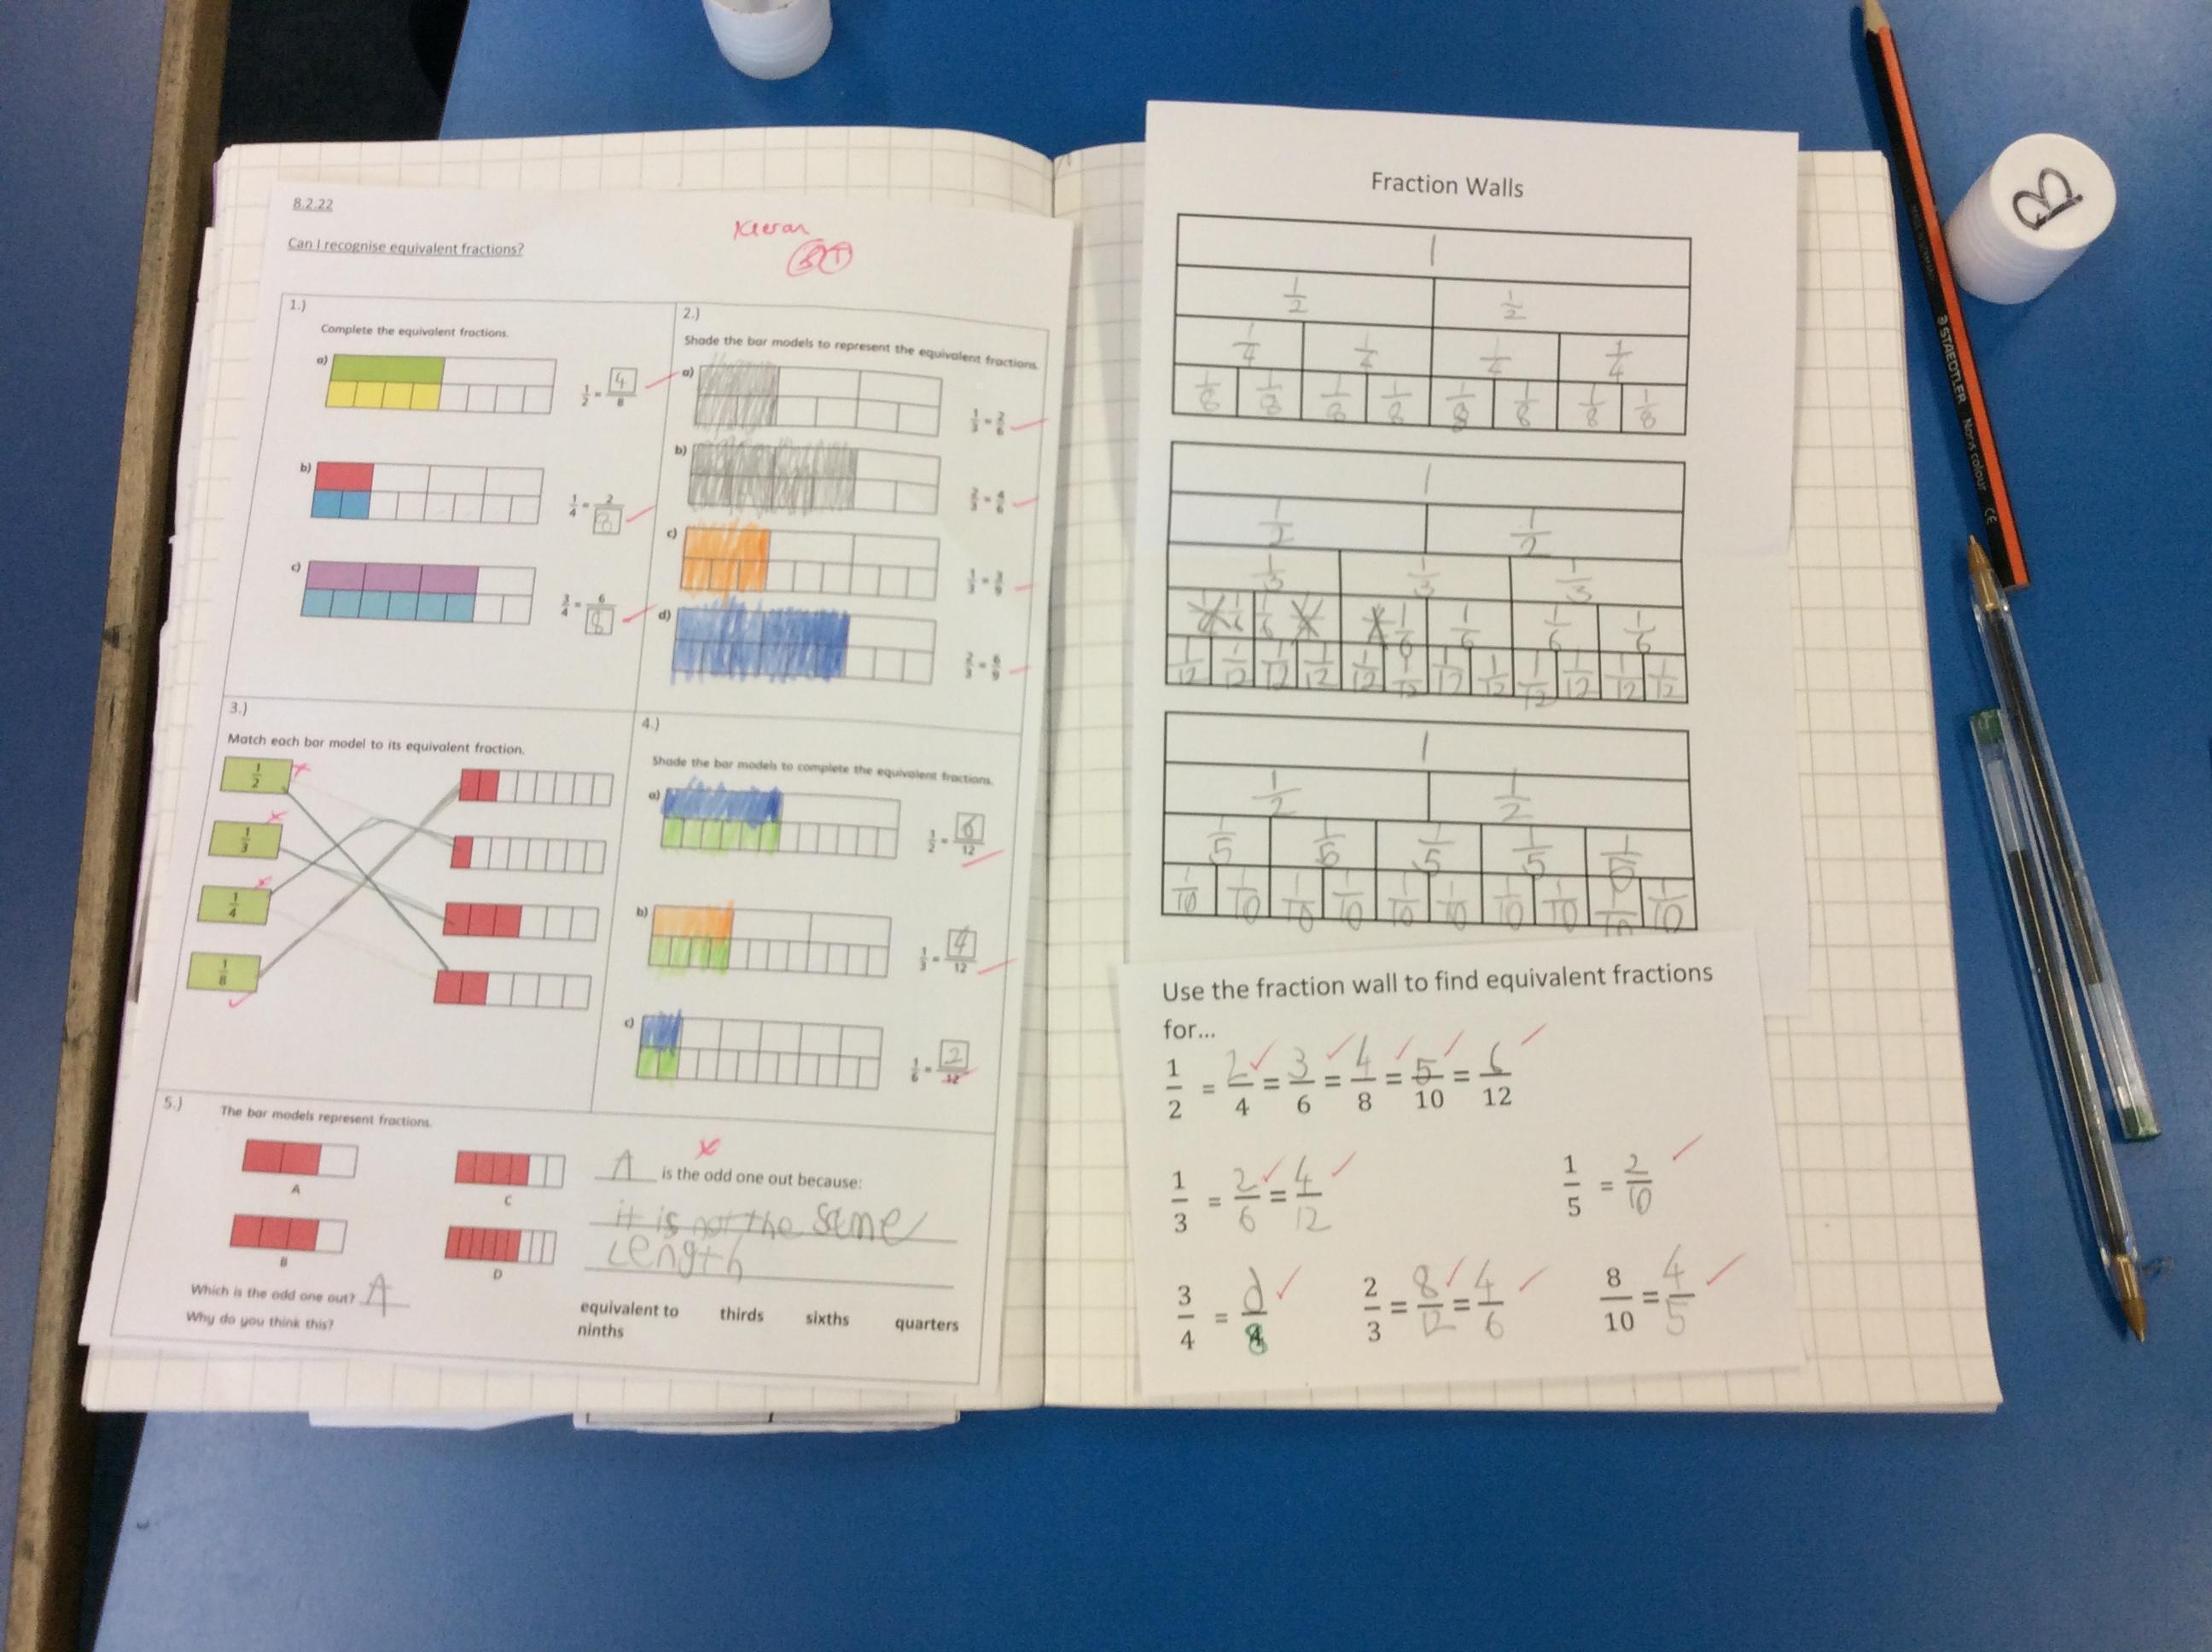 8.2.22
Kieran
Can I recognise equivalent fractions?
1.)
Complete the equivalent fractions.
a)
1/2 = 4/8
b)
1/4 = 2/8
c)
3/4 = 6/8
2.)
Shade the bar models to represent the equivalent fractions.
a)
1/3 = 2/6
b)
2/3 = 4/6
c)
1/3 = 3/9
d)
2/3 = 6/9
3.)
Match each bar model to its equivalent fraction.
1/2
1/3
1/4
1/8
4.)
Shade the bar models to complete the equivalent fractions.
a)
1/2 = 6/12
b)
1/3 = 4/12
c)
1/6 = 2/12
5.)
The bar models represent fractions.
A
C
B
D
Which is the odd one out? A
Why do you think this?
A is the odd one out because:
it is not the same
Length
equivalent to thirds sixths quarters
ninths
Fraction Walls
1
1/2 1/2
1/4 1/4 1/4 1/4
1/8 1/8 1/8 1/8 1/8 1/8 1/8 1/8
1
1/2 1/2
1/3 1/3 1/3
1/6 1/6 1/6 1/6 1/6 1/6
1/12 1/12 1/12 1/12 1/12 1/12 1/12 1/12 1/12 1/12 1/12 1/12
1
1/2 1/2
1/5 1/5 1/5 1/5 1/5
1/10 1/10 1/10 1/10 1/10 1/10 1/10 1/10 1/10 1/10
Use the fraction wall to find equivalent fractions
for...
1/2 = 2/4 = 3/6 = 4/8 = 5/10 = 6/12
1/3 = 2/6 = 4/12
1/5 = 2/10
3/4 = /8
2/3 = 8/12 = 4/6
8/10 = 4/5
B
STAEDTLER Noris colour CE